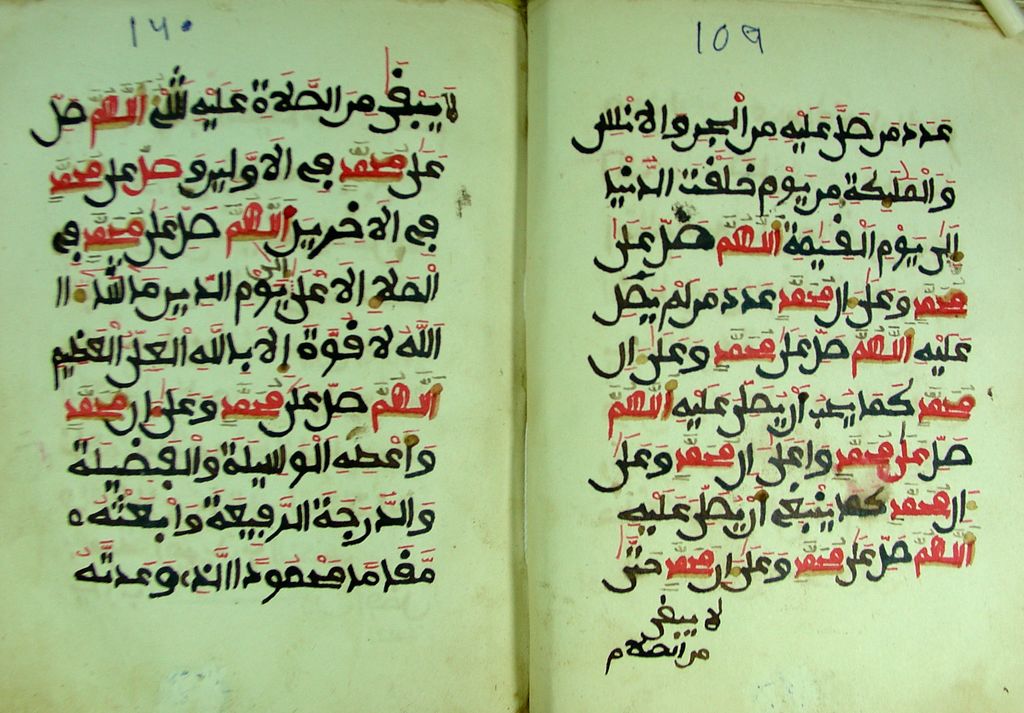 ١٥٩
عدد من صلَّى عليه من الجن والانس
والمليكة من يوم خلقت الدنيا
الى يوم القيمة اللهم صل على
محمد وعلى ال محمد عدد من لم يصل
عليه اللهم صل على محمد وعلى ال
محمد كما يحب ان يصلى عليه اللهم
صل على محمد واعلى ال محمد وعلى
ال محمد كما ينبغي ان يصلى عليه
اللهم صل على محمد وعلى ال محمد حتى
لا يبقى
من الصلاة
١٦٠
لا يبقى من الصلاة عليه شيء اللهم صل
على محمد في الاولين وصل على محمد
في الاخرين اللهم صل على محمد في
الملا الاعلى الى يوم الدين ما شاء
الله لا قوة الا بالله العلي العظيم
اللهم صل على محمد وعلى ال محمد
واعطه الوسيلة والفضيلة
والدرجة الرفيعة وابعثه
مقاما محمودا الذي وعدته